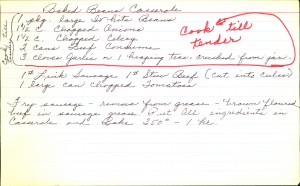 Baked Beans Casserole
1 pkg. large Beans
1½ c. Chopped Onions
1½ c. Chopped Celery
2 cans Beef Consomme
3 cloves Garlic or 1 heaping teas. crushed from jar
Cook till
tender
1# Link Sausage 1# Stew Beef (Cut into cubes)
1 large can chopped Tomatoes
Fry sausage - remove from grease - brown floured
beef in sausage grease. Put all ingredients in
Casserole and Bake 350° - 1 hr.